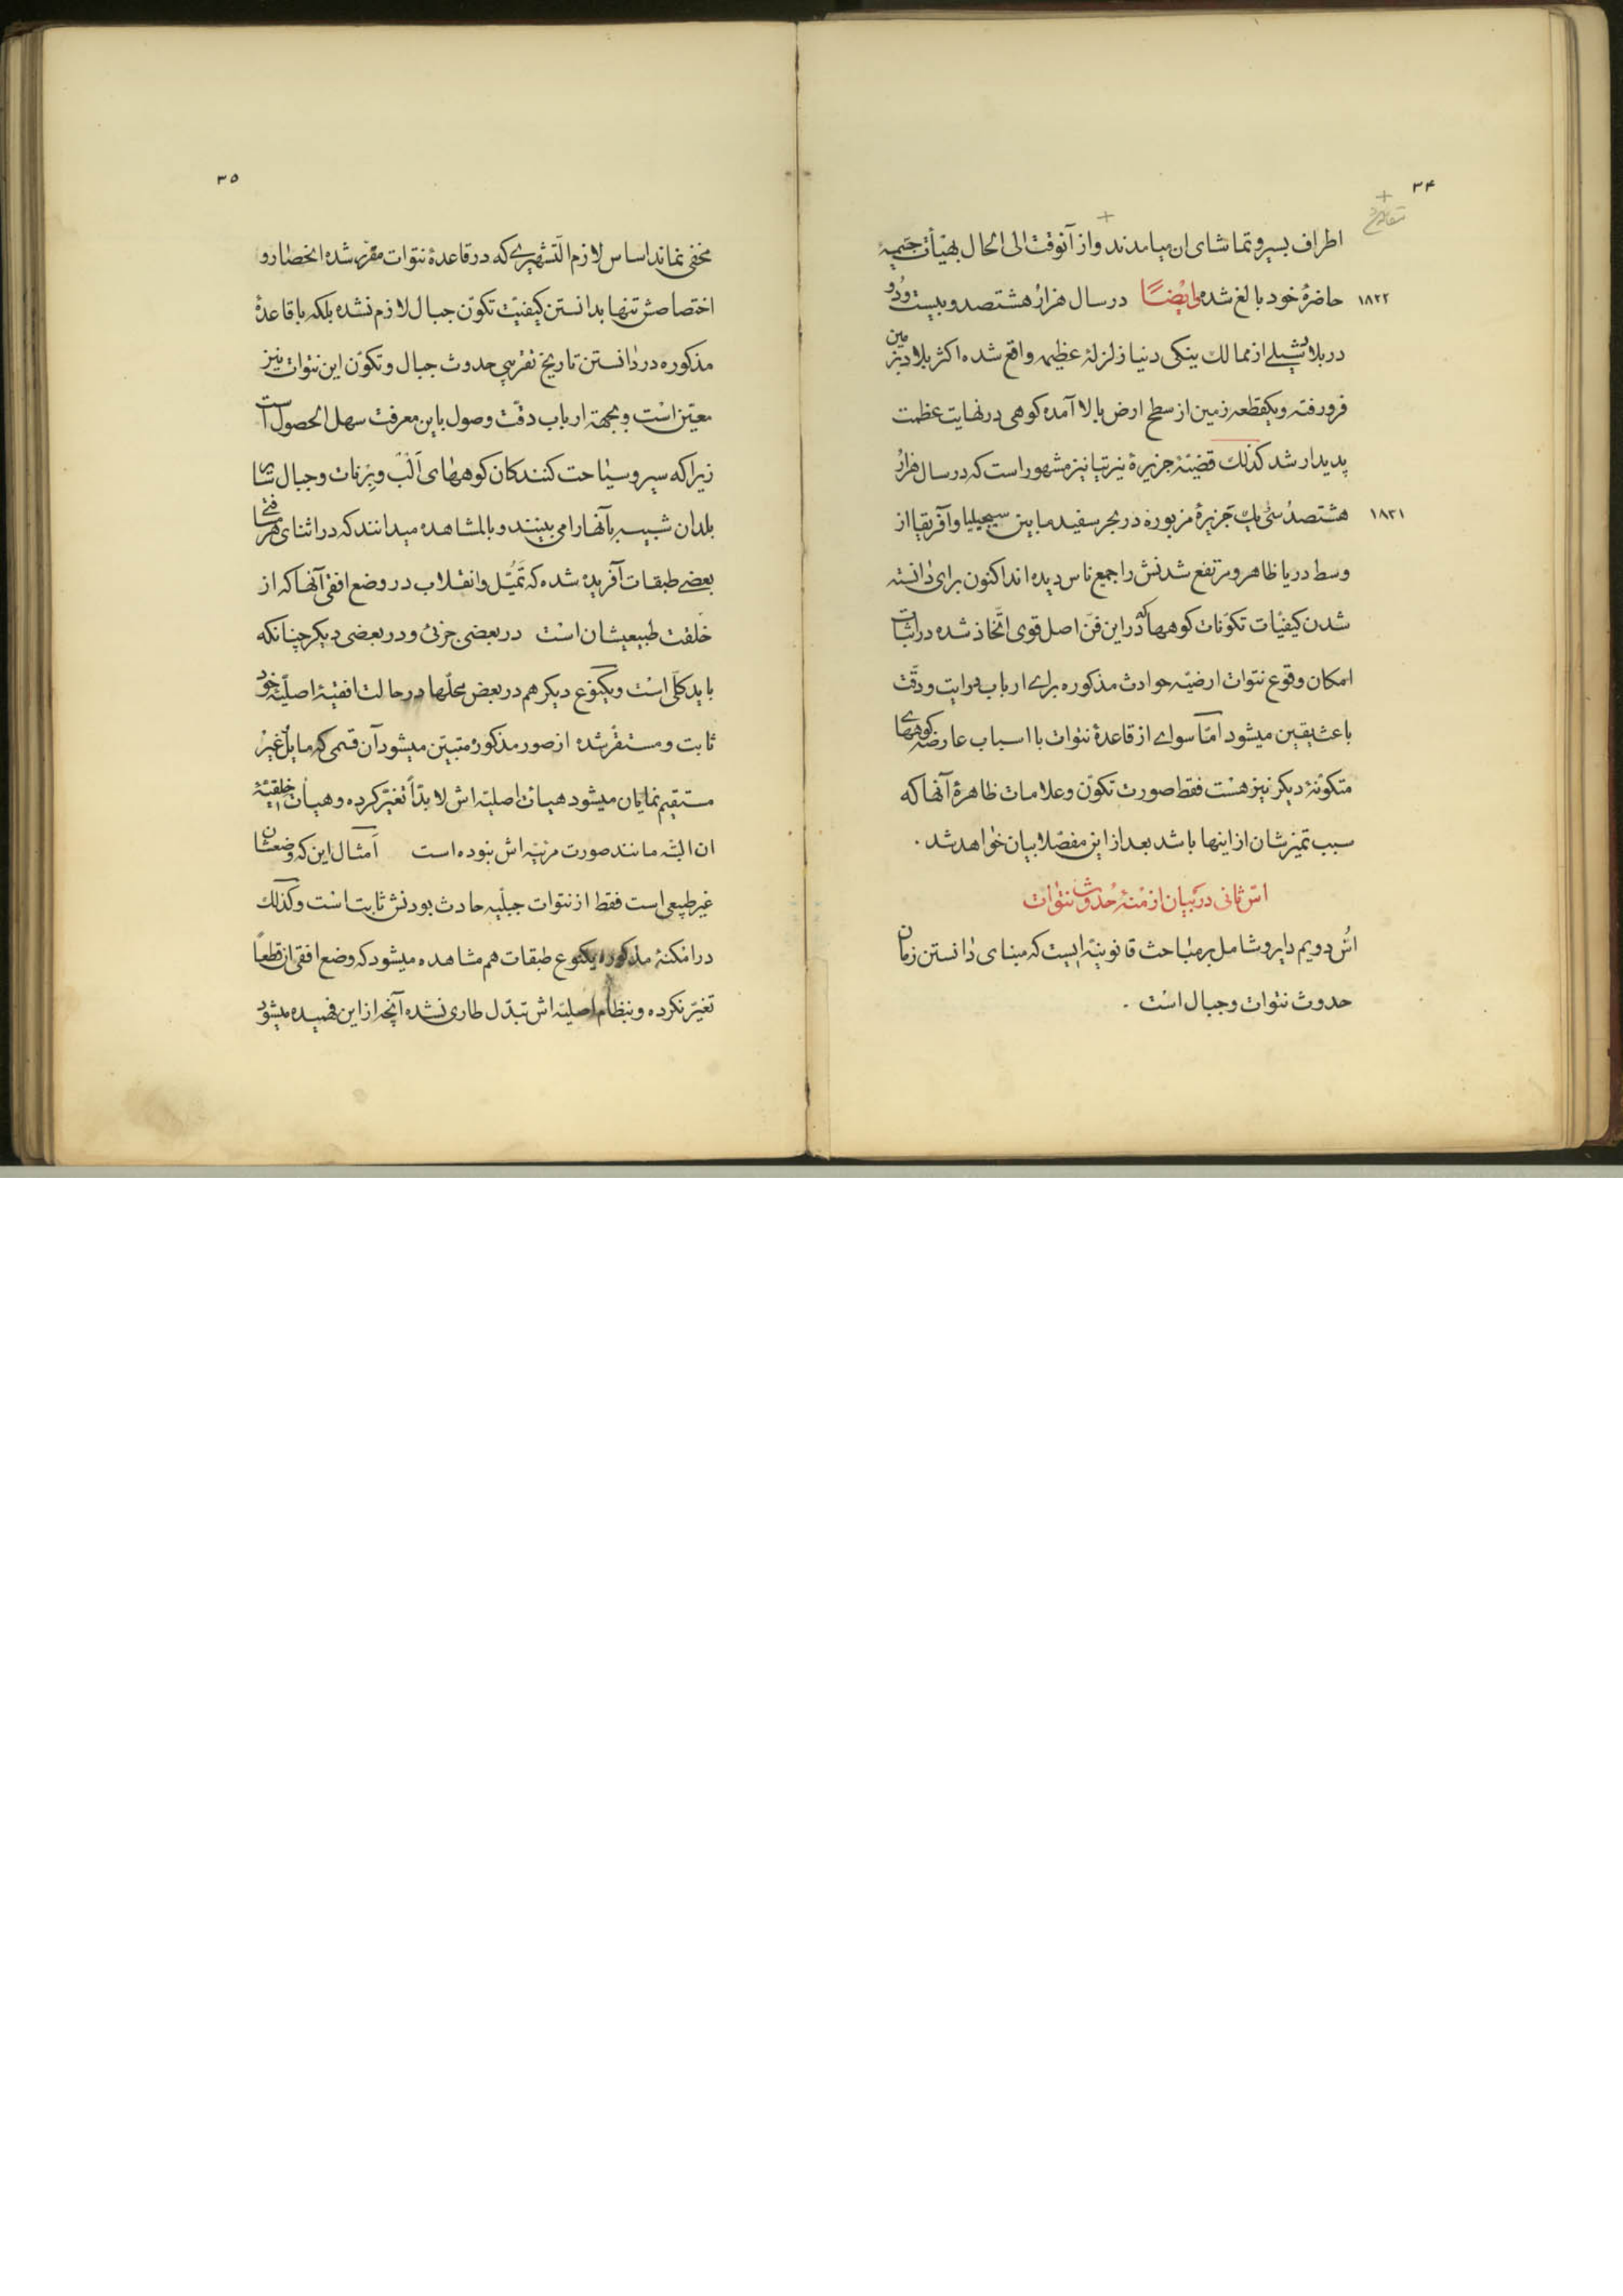 ۳۴
اطراف بسیر و تماشای ان میامدند و از آنوقت الی الحال بهیأت جسمیه
۱۸۲۲ حاضرهٔ خود بالغ شده ایضاً در سال هزار و هشتصد و بیست و دو
در بلاد شیلی از ممالک ینکی دنیا زلزلهٔ عظیمه واقع شده اکثر بلاد بزمین
فرو رفته و یکقطعه زمین از سطح ارض بالا آمده کوهی در نهایت عظمت
پدیدار شد کذلک قضیّهٔ جزیرهٔ نیرتیا نیز مشهور است که در سال هزار و
۱۸۳۱ هشتصد و سی یک جزیرهٔ مزبوره در بحر سفید ما بین سیجیلیا و آفریقا از
وسط دریا ظاهر و مرتفع شدنش را جمیع ناس دیده اند اکنون برای دانسته
شدن کیفیّات تکوّنات کوهها که در این فنّ اصل قوی اتّخاذ شده در اثبات
امکان وقوع نتوات ارضیّه حوادث مذکوره برای ارباب درایت و دقّت
باعث یقین میشود امّا سوای از قاعدهٔ نتوات با اسباب عارضه کوههای
متکوّنهٔ دیگر نیز هست فقط صورت تکوّن و علامات ظاهرهٔ آنها که
سبب تمیزشان از اینها باشد بعد از این مفصّلا بیان خواهد شد .
اسّ ثانی در بیان ازمنهٔ حدوث نتوات
اسّ دویم دایر و شامل بر مباحث قانونیّه ایست که مبنای دانستن زمان
حدوث نتوات و جبال است .
۳۵
مخفی نماند اساس لازم التّشهیری که در قاعدهٔ نتوات مقرّر شده انحصار و
اختصاصش تنها بدانستن کیفیّت تکوّن جبال لازم نشده بلکه با قاعدهٔ
مذکوره در دانستن تاریخ تقریبی حدوث جبال و تکوّن این نتوات نیز
معیّن است و بجهة ارباب دقّت وصول باین معرفت سهل الحصول است
زیرا که سیر و سیاحت کنندکان کوههای آلپ و پرنات و جبال سایر
بلدان شبیه بآنها را می بینند و بالمشاهده میدانند که در اثنای هر فتحا
بعضی طبقات آفریده شده که تمیّل و انقلاب در وضع افقی آنها که از
خلقت طبیعیشان است در بعضی جزئی و در بعضی دیکر چنانکه
باید کلّی است و یکنوع دیکر هم در بعض محلّها در حالت افقیّهٔ اصلیّهٔ خود
ثابت و مستقرّ شده از صور مذکوره متبیّن میشود آن قسمی که مایل و غیر
مستقیم نمایان میشود هیات اصلیّه اش لابدّاً تغیّر کرده و هیأت خلقیّهٔ
ان البتّه مانند صورت مرئیّه اش نبوده است امثال این که وضعشان
غیر طبیعی است فقط از نتوات جبلیّه حادث بودنش ثابت است و کذلک
در امکنهٔ مذکوره یکنوع طبقات هم مشاهده میشود که وضع افقی ان قطعاً
تغیّر نکرده و بنظام اصلیّه اش تبدّل طاری نشده آنچه از این فهمیده میشود